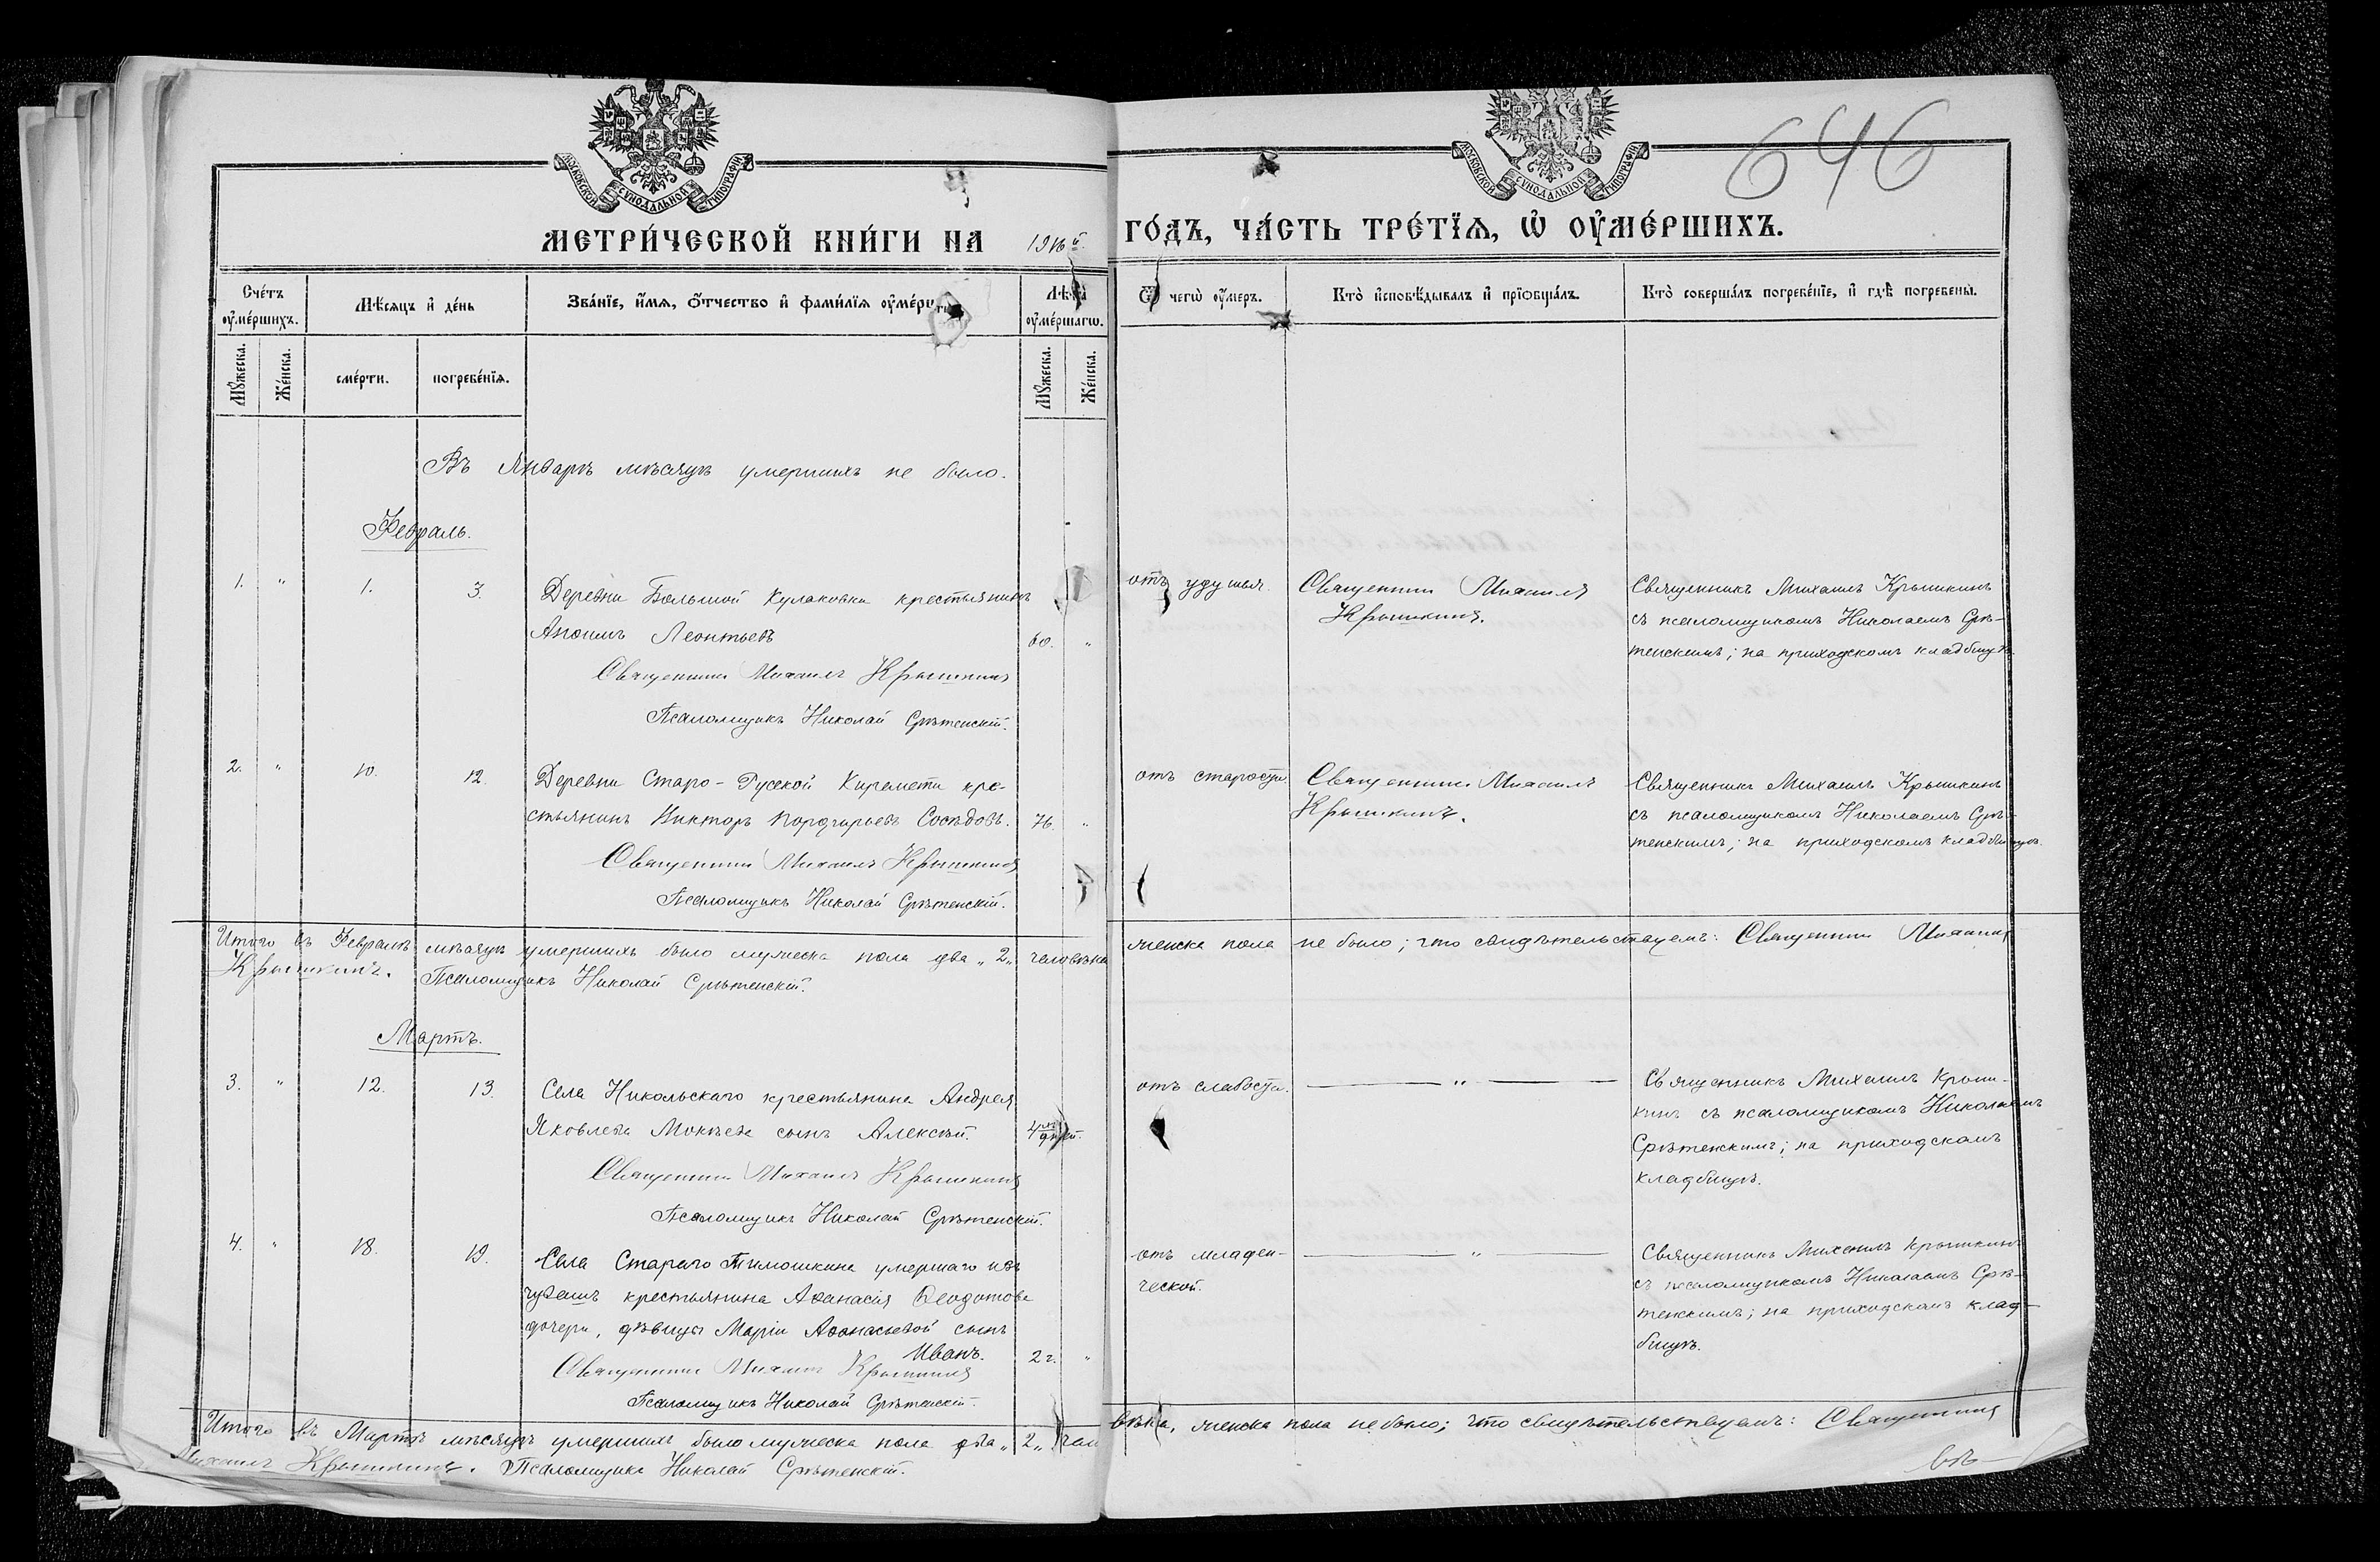 646
МОСКОВСКОЙ СѴНОДАЛЬНОЙ ТИПОГРАФІИ
МОСКОВСКОЙ СѴНОДАЛЬНОЙ ТИПОГРАФІИ
МЕТРИ́ЧЕСКОЙ КНИ́ГИ НА 1916й. ГО́ДЪ, ЧА́СТЬ ТРЕ́ТЇѦ, Ѡ҆ ОУ҆МЕ́РШИХЪ.
Сче́тъ оу҆ме́ршихъ.
Мꙋ́жеска.
Же́нска.
Мѣ́сѧцъ и҆ де́нь
сме́рти.
погребе́нїѧ.
Зва́нїе, и҆́мѧ, ѻ҆́тчество и҆ фами́лїѧ оу҆ме́рш
Лѣ́та оу҆ме́ршагѡ.
Мꙋ́жеска.
Же́нска.
Ѿ чегѡ̀ оу҆́меръ.
Кто̀ и҆сповѣ́дывалъ и҆ прїѡбща́лъ.
Кто̀ соверша́лъ погребе́нїе, и҆ гдѣ̀ погребены̀.
Въ Январѣ мѣсяцѣ умершихъ не было.
Февраль.
1. " 1. 3. Деревни Большой Кулаковки крестьянинъ
Леонтьевъ 60. "
Священникъ Михаилъ Крышкинъ
Псаломщикъ Николай Срѣтенскій.
отъ удушья.
Священникъ Михаилъ
Крышкинъ.
Священникъ Михаилъ Крышкинъ
съ псаломщикомъ Николаемъ Срѣ-
тенскимъ; на приходскомъ кладбищѣ.
2. " 10. 12. Деревни Старо-Русской Киремети кре-
стьянинъ Викторъ Порфирьевъ Сосѣдовъ. 76. "
Священникъ Михаилъ Крышкинъ
Псаломщикъ Николай Срѣтенскій.
отъ старости.
Священникъ Михаилъ
Крышкинъ.
Священникъ Михаилъ Крышкинъ
съ псаломщикомъ Николаемъ Срѣ-
тенскимъ; на приходскомъ кладбищѣ.
Итого въ Февралѣ мѣсяцѣ умершихъ было мужеска пола два „2„ человѣка женска пола не было; что свидѣтельствуемъ: Священникъ Михаилъ
Крышкинъ. Псаломщикъ Николай Срѣтенскій.
Мартъ.
3. " 12. 13. Села Никольскаго крестьянина Андрея
Яковлева Мокѣева сынъ Алексѣй. 4 дней.
Священникъ Михаилъ Крышкинъ
Псаломщикъ Николай Срѣтенскій.
отъ слабости.
— " —
Священникъ Михаилъ Крыш-
кинъ съ псаломщикомъ Николаемъ
Срѣтенскимъ; на приходскомъ
кладбищѣ.
4. " 18. 19. Села Стараго Тимошкина умершаго изъ
чувашъ крестьянина Аѳанасія Ѳеодотова
дочери, дѣвицы Маріи Аѳанасьевой сынъ
Иванъ. 2 г. "
Священникъ Михаилъ Крышкинъ
Псаломщикъ Николай Срѣтенскій.
отъ младен-
ческой.
— " —
Священникъ Михаилъ Крышкинъ
съ псаломщикомъ Николаемъ Срѣ-
тенскимъ; на приходскомъ клад-
бищѣ.
Итого въ Мартѣ мѣсяцѣ умершихъ было мужеска пола два „2„ чело вѣка, женска пола не было; что свидѣтельствуемъ: Священникъ
Михаилъ Крышкинъ. Псаломщикъ Николай Срѣтенскій.